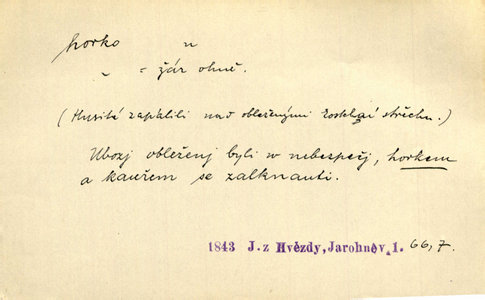 horko n
„ = žár ohně.
(Husité zapálili nad obleženými střechu.)
Ubozj obleženj byli w nebezpečj, horkem
a kauřem se zalknauti.
1843 J. z Hvězdy, Jarohněv 1. 66,7.